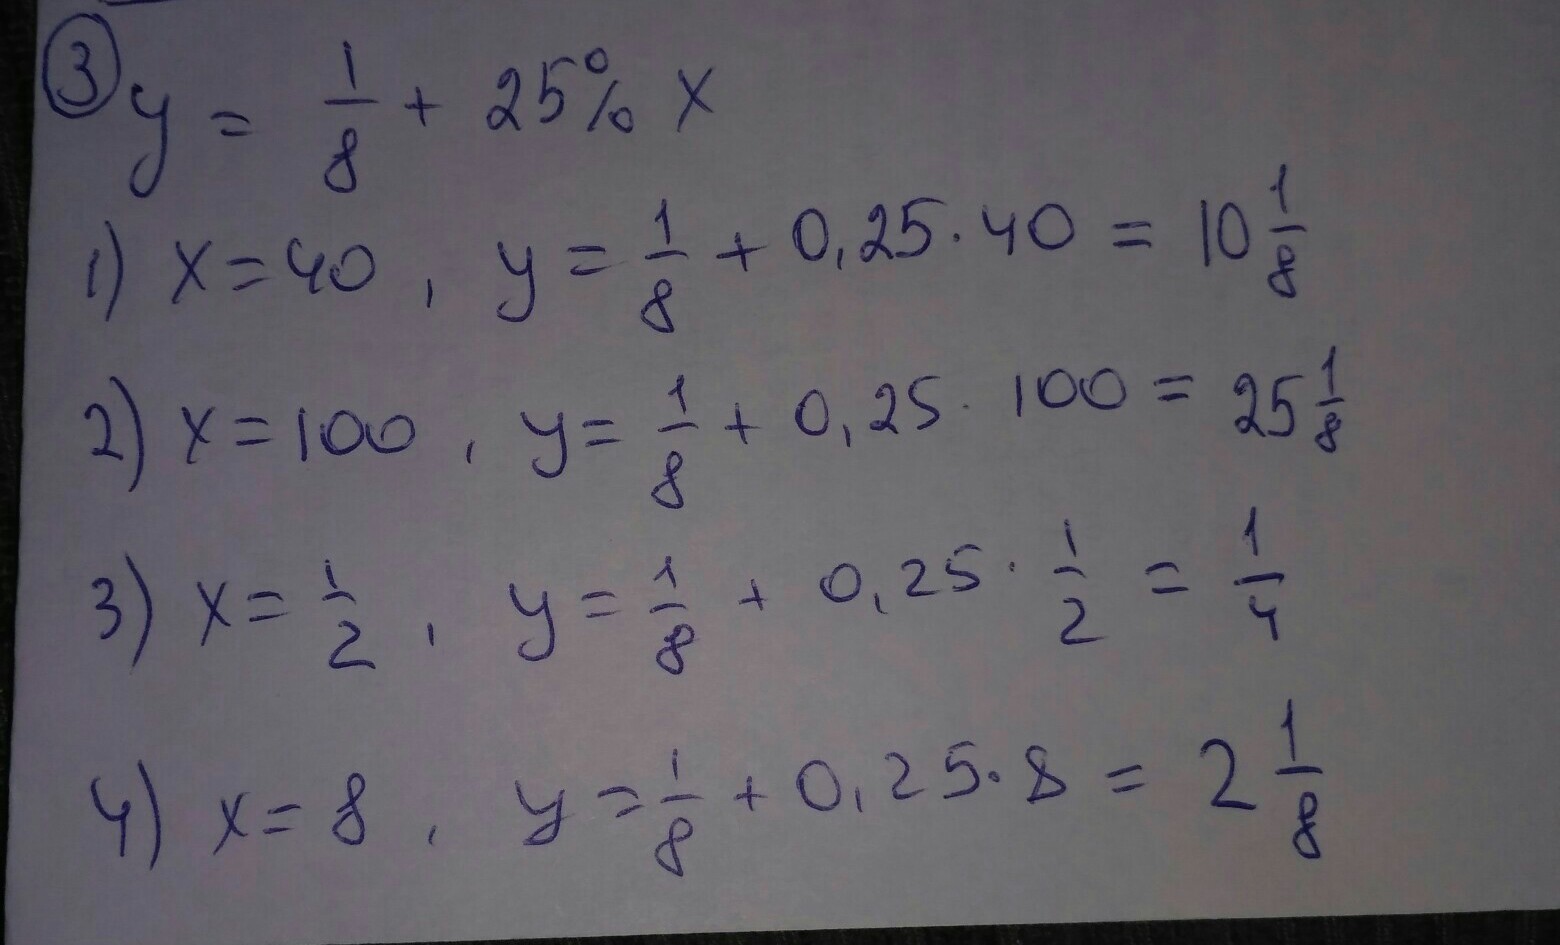 ③ y = 1/8 + 25% x
1) x = 40 , y = 1/8 + 0,25 · 40 = 10 1/8
2) x = 100 , y = 1/8 + 0,25 · 100 = 25 1/8
3) x = 1/2 , y = 1/8 + 0,25 · 1/2 = 1/4
4) x = 8 , y = 1/8 + 0,25 · 8 = 2 1/8